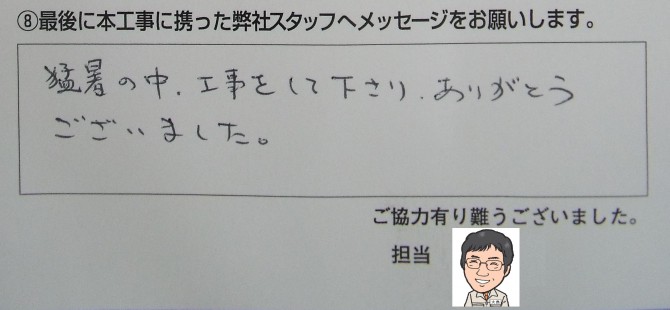 ⑧最後に本工事に携った弊社スタッフへメッセージをお願いします。
猛暑の中、工事をして下さり、ありがとう
ございました。
ご協力有り難うございました。
担当